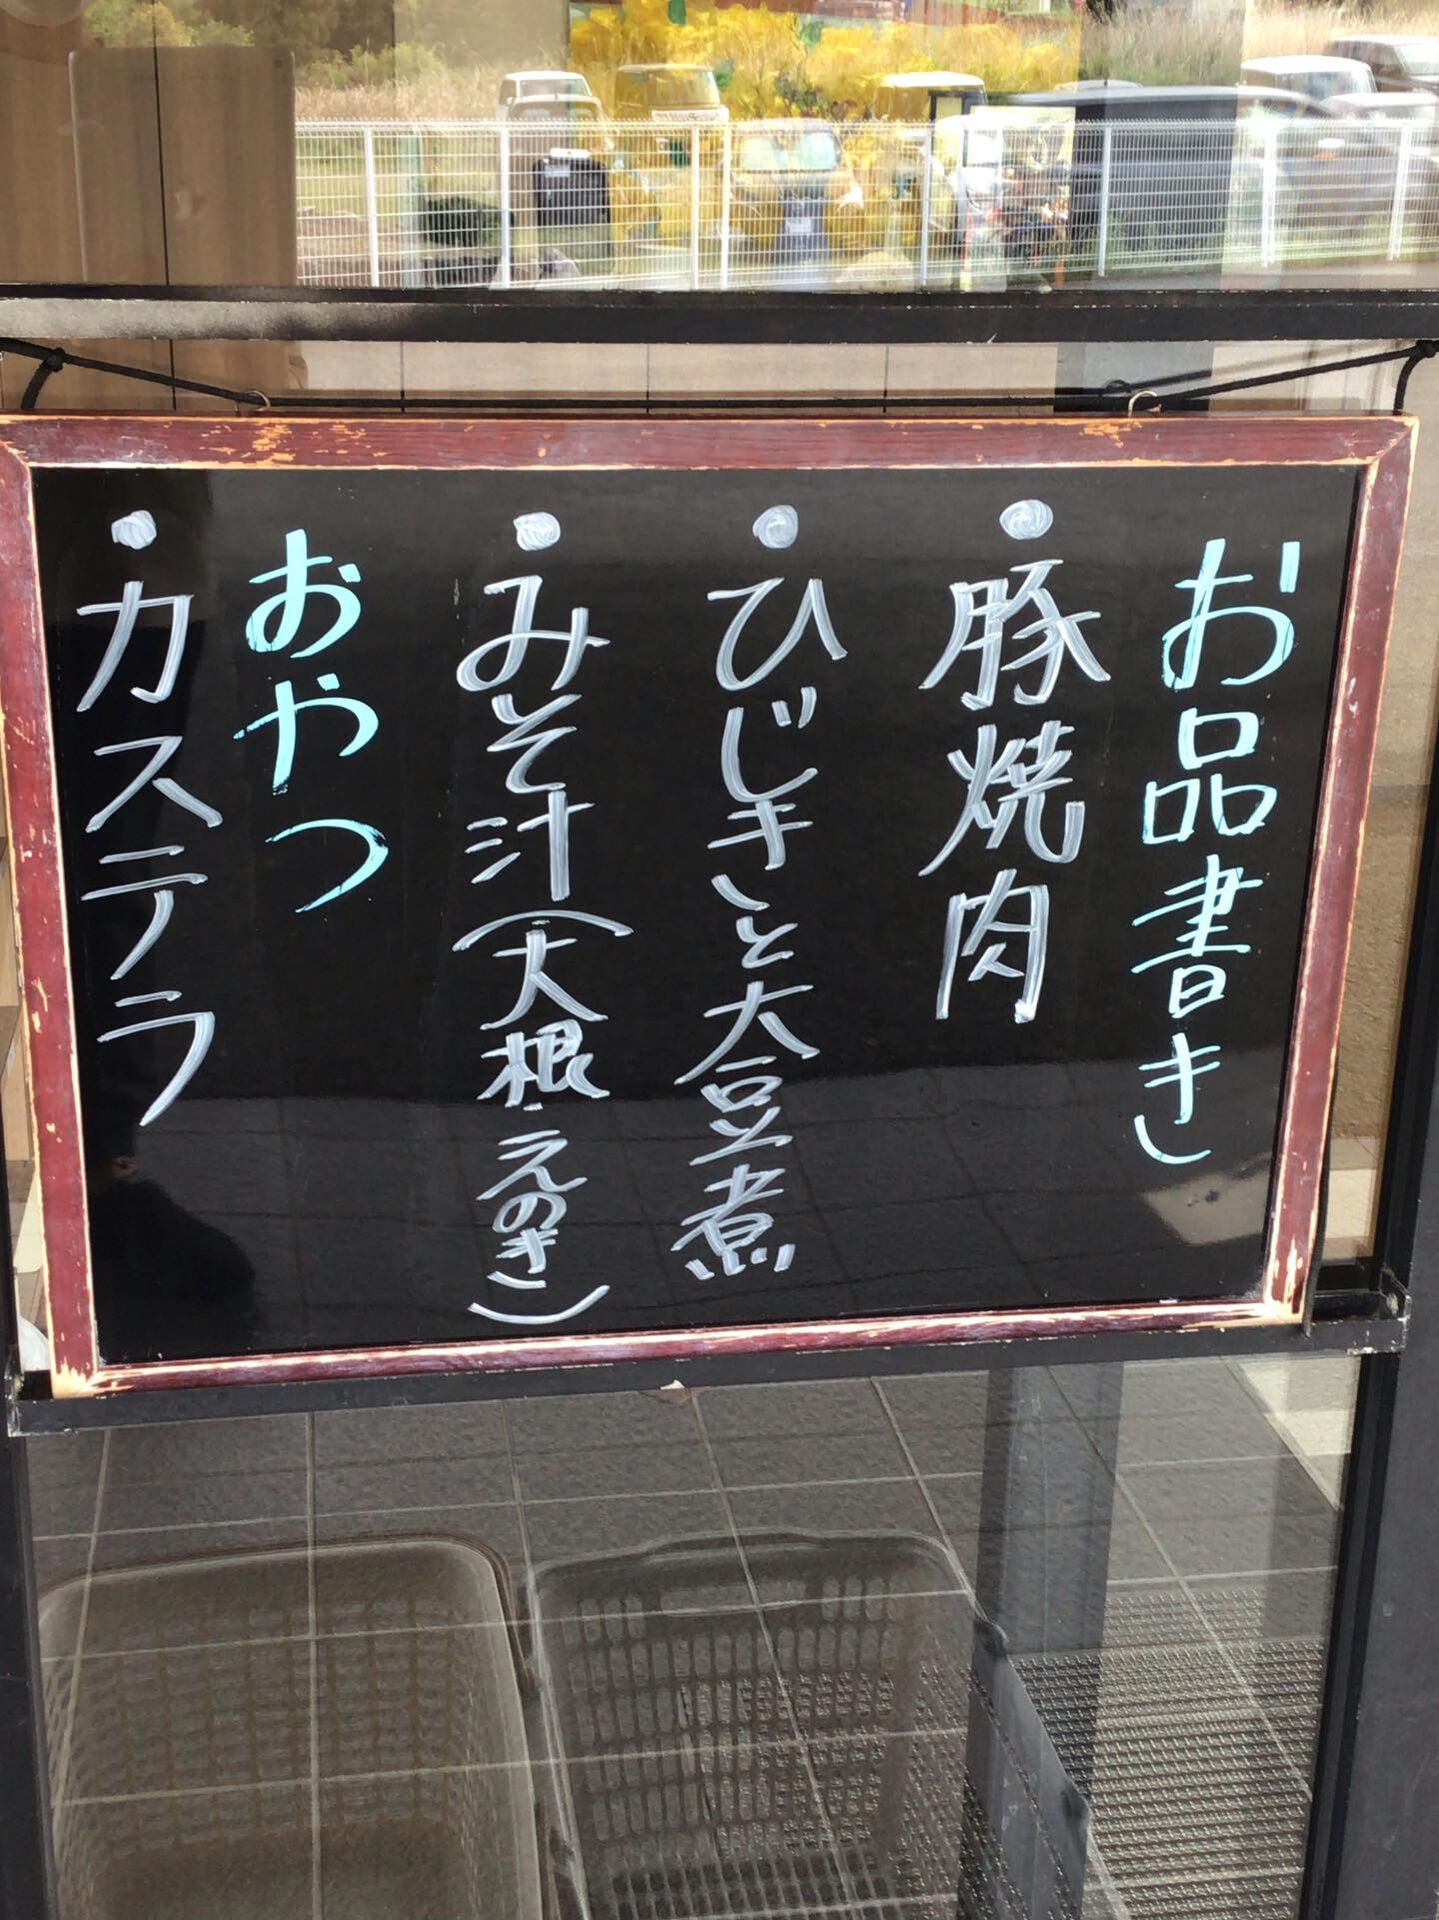 お品書き
・豚焼肉
・ひじきと大豆煮
・みそ汁(大根・えのき)
おやつ
・カステラ